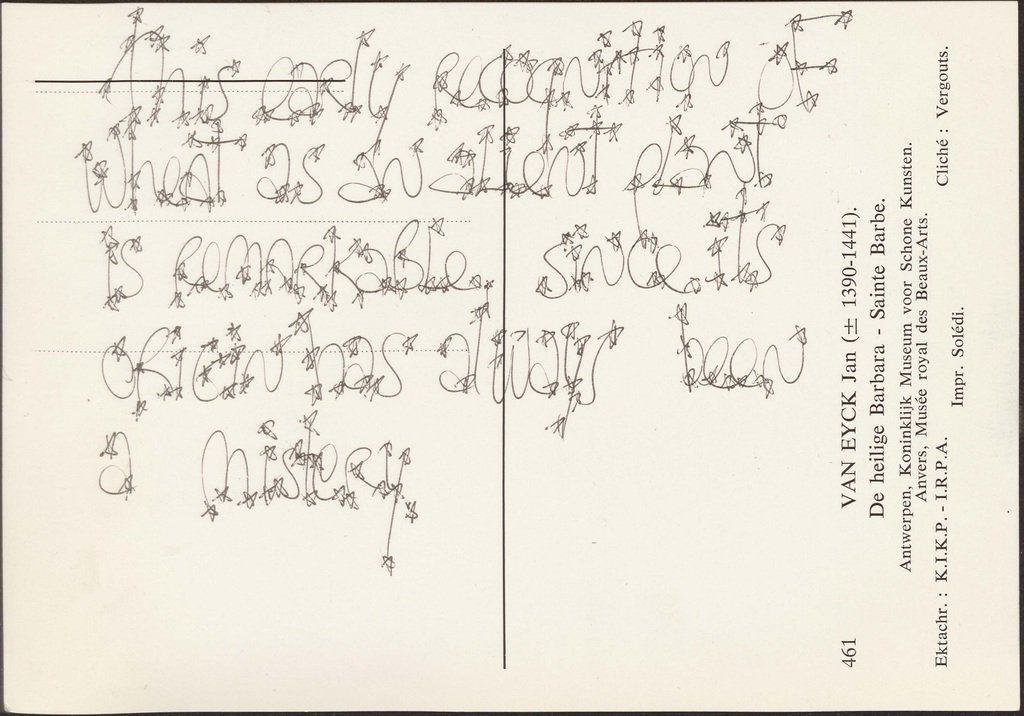 this early recognition of
wheat as an plant
is remarkable since its
origin has always been
a mistery
461 VAN EYCK Jan (± 1390-1441).
De heilige Barbara - Sainte Barbe.
Antwerpen, Koninklijk Museum voor Schone Kunsten.
Anvers, Musée royal des Beaux-Arts.
Ektachr. : K.I.K.P. - I.R.P.A. Cliché : Vergouts.
Impr. Solédi.